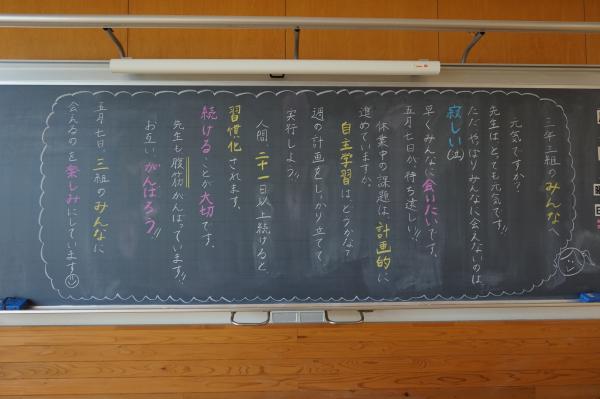 三年三組のみんなへ
元気ですか？
先生はとっても元気です!!
ただやはりみんなに会えないのは
寂しい(泣)
早くみんなに会いたいです。
五月七日が待ち遠しい!!
休業中の課題は、計画的に
進めていますか。
自主学習はどうかな？
週の計画をしっかり立てて、
実行しよう!!
人間、二十一日以上続けると、
習慣化されます。
続けることが大切です。
先生も腹筋がんばっています!!
お互いがんばろう!!
五月七日、三組のみんなに
会えるのを楽しみにしています